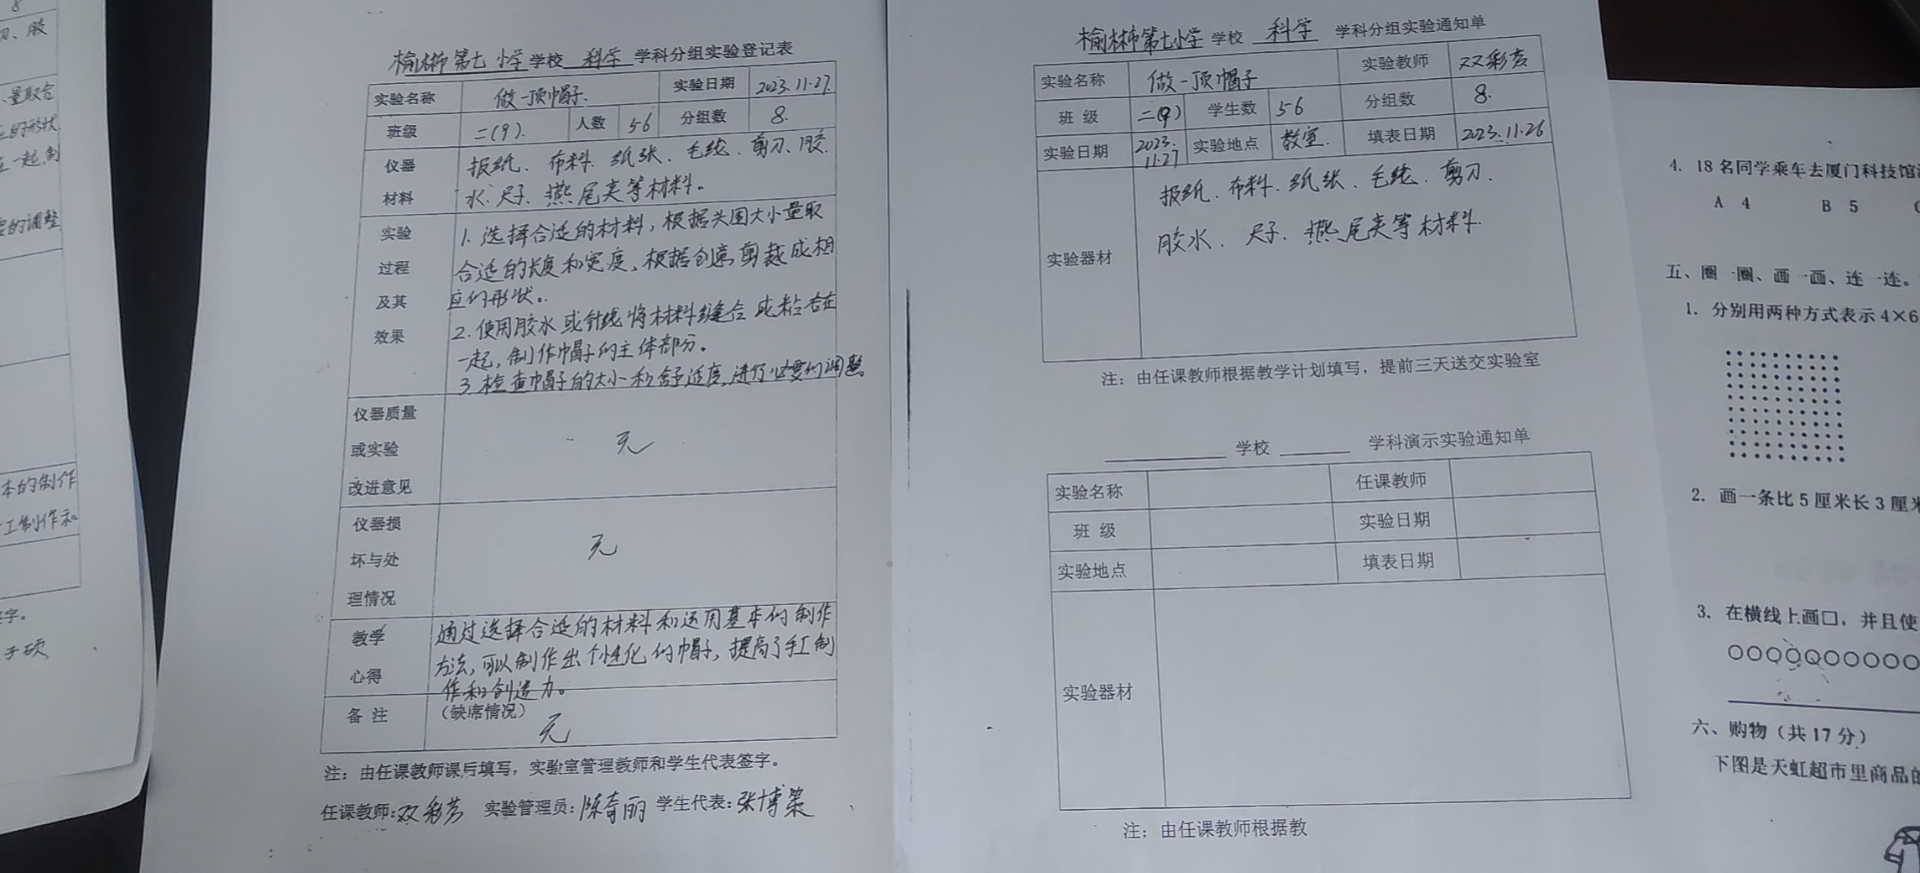 榆林第七小学学校 科学 学科分组实验登记表
实验名称 做一顶帽子. 实验日期 2023.11.27
班级 二(9). 人数 56 分组数 8.
仪器材料 报纸、布料.纸张、毛线.剪刀、胶
水、尺子、燕尾夹等材料。
实验过程及其效果 1.选择合适的材料，根据头围大小量取
合适的长度和宽度，根据创意剪裁成相
应的形状。
2.使用胶水或针线将材料缝合或粘合在
一起，制作帽子的主体部分。
3.检查帽子的大小和舒适度,进行必要的调整
仪器质量或实验改进意见 无
仪器损坏与处理情况 无
教学心得 通过选择合适的材料和运用基本的制作
方法,可以制作出个性化的帽子，提高了手工制
作和创造力。
备注 （缺席情况） 无
注：由任课教师课后填写，实验室管理教师和学生代表签字。
任课教师:双彩芳 实验管理员:陈奇丽 学生代表:张博策
榆林第七小学 学校 科学 学科分组实验通知单
实验名称 做一顶帽子 实验教师 双彩芳
班 级 二(9) 学生数 56 分组数 8.
实验日期 2023.11.27 实验地点 教室. 填表日期 2023.11.26
实验器材 报纸、布料、纸张、毛线、剪刀、
胶水、尺子、燕尾夹等材料.
注：由任课教师根据教学计划填写，提前三天送交实验室
学校 学科演示实验通知单
实验名称 任课教师
班 级 实验日期
实验地点 填表日期
实验器材
注：由任课教师根据教
4. 18名同学乘车去厦门科技馆
A 4 B 5
五、圈一圈、画一画、连一连。
1. 分别用两种方式表示4×6
2. 画一条比5厘米长3厘米
3. 在横线上画□，并且使
○○○○○○○○○○
六、购物（共17分）
下图是天虹超市里商品的